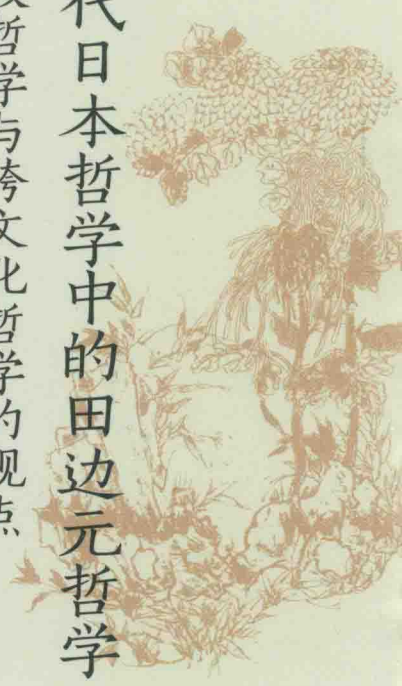 代日本哲学中的田边元哲学
哲学与跨文化哲学的观点